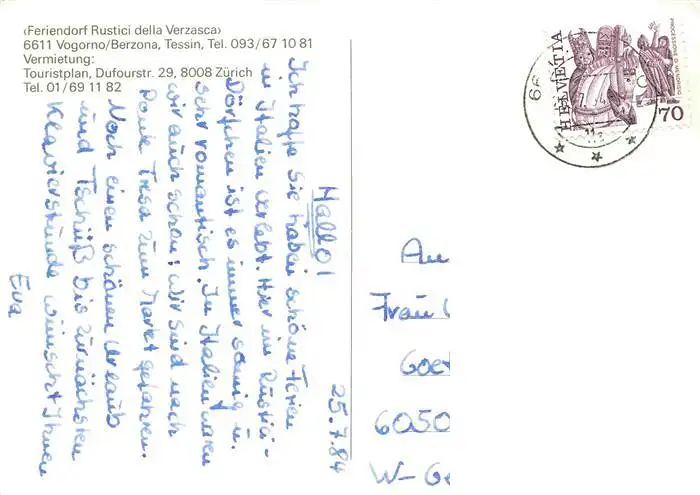 ‹Feriendorf Rustici della Verzasca›
6611 Vogorno/Berzona, Tessin, Tel. 093/67 10 81
Vermietung:
Touristplan, Dufourstr. 29, 8008 Zürich
Tel. 01/69 11 82
25.7.84
Hallo!
Ich hoffe Sie haben schöne Ferien
in Italien verlebt. Hier im Rustici-
Dörfchen ist es immer sonnig u.
sehr romantisch. In Italien waren
wir auch schon: wir sind nach
Ponte Tresa zum Markt gefahren.
Noch einen schönen Urlaub
und Tschüß bis zur nächsten
Klavierstunde wünscht Ihnen
Eva
HELVETIA
PROCESSIONE D MENDRISIO
70
An
Frau
Goet
6050
W-Ge